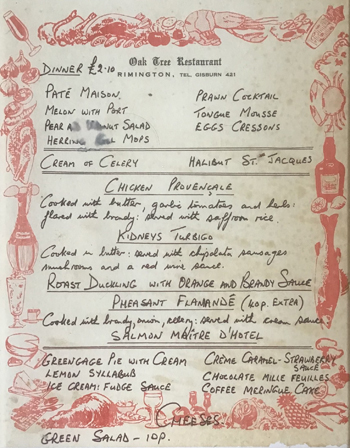 Oak Tree Restaurant
DINNER £2.10
RIMINGTON, TEL. GISBURN 421
PATÉ MAISON. PRAWN COCKTAIL
MELON WITH PORT TONGUE MOUSSE
PEAR SALAD EGGS CRESSONS
HERRING MOPS
CREAM OF CELERY HALIBUT ST. JACQUES
CHICKEN PROVENÇALE
Cooked with butter, garlic tomatoes and herbs:
flared with brandy: served with saffron rice.
KIDNEYS TURBIGO
Cooked in butter: served with chipolata sausages
mushrooms and a red wine sauce.
ROAST DUCKLING WITH ORANGE AND BRANDY SAUCE
PHEASANT FLAMANDÉ (40p. EXTRA)
Cooked with brandy, onion, celery: served with cream sauce
SALMON MAÎTRE D'HOTEL
GREENGAGE PIE WITH CREAM CRÈME CARAMEL-STRAWBERRY SAUCE
LEMON SYLLABUB CHOCOLATE MILLE FEUILLES
ICE CREAM: FUDGE SAUCE COFFEE MERINGUE CAKE
CHEESES
GREEN SALAD - 10P.